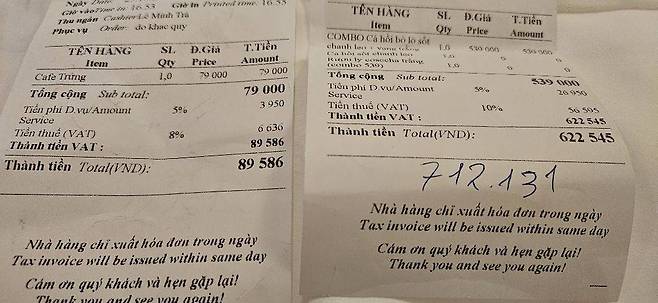 Giờ vào Time in: 16.53 Giờ in Printed time: 16.55
Thu ngân Cashier: Lê Minh Trà
Phục vụ Order: do khac quy
TÊN HÀNG SL Đ.Giá T.Tiền
Item Qty Price Amount
Cafe Trứng 1,0 79 000 79 000
Tổng cộng Sub total: 79 000
Tiền phí D.vụ/Amount 5% 3 950
Service
Tiền thuế (VAT) 8% 6 636
Thành tiền VAT : 89 586
Thành tiền Total(VND): 89 586
Nhà hàng chỉ xuất hóa đơn trong ngày
Tax invoice will be issued within same day
Cám ơn quý khách và hẹn gặp lại!
Thank you and see you again!
TÊN HÀNG SL Đ.Giá T.Tiền
Item Qty Price Amount
COMBO Cá hồi bỏ lò sốt
chanh leo + vang trắng 1,0 539 000 539 000
Cá hồi sốt chanh leo 1,0 0 0
(combo 539) 1,0 0 0
Tổng cộng Sub total: 539 000
Tiền phí D.vụ/Amount 5% 26 950
Service
Tiền thuế (VAT) 10% 56 595
Thành tiền VAT : 622 545
Thành tiền Total(VND): 622 545
712.131
Nhà hàng chỉ xuất hóa đơn trong ngày
Tax invoice will be issued within same day
Cám ơn quý khách và hẹn gặp lại!
Thank you and see you again!